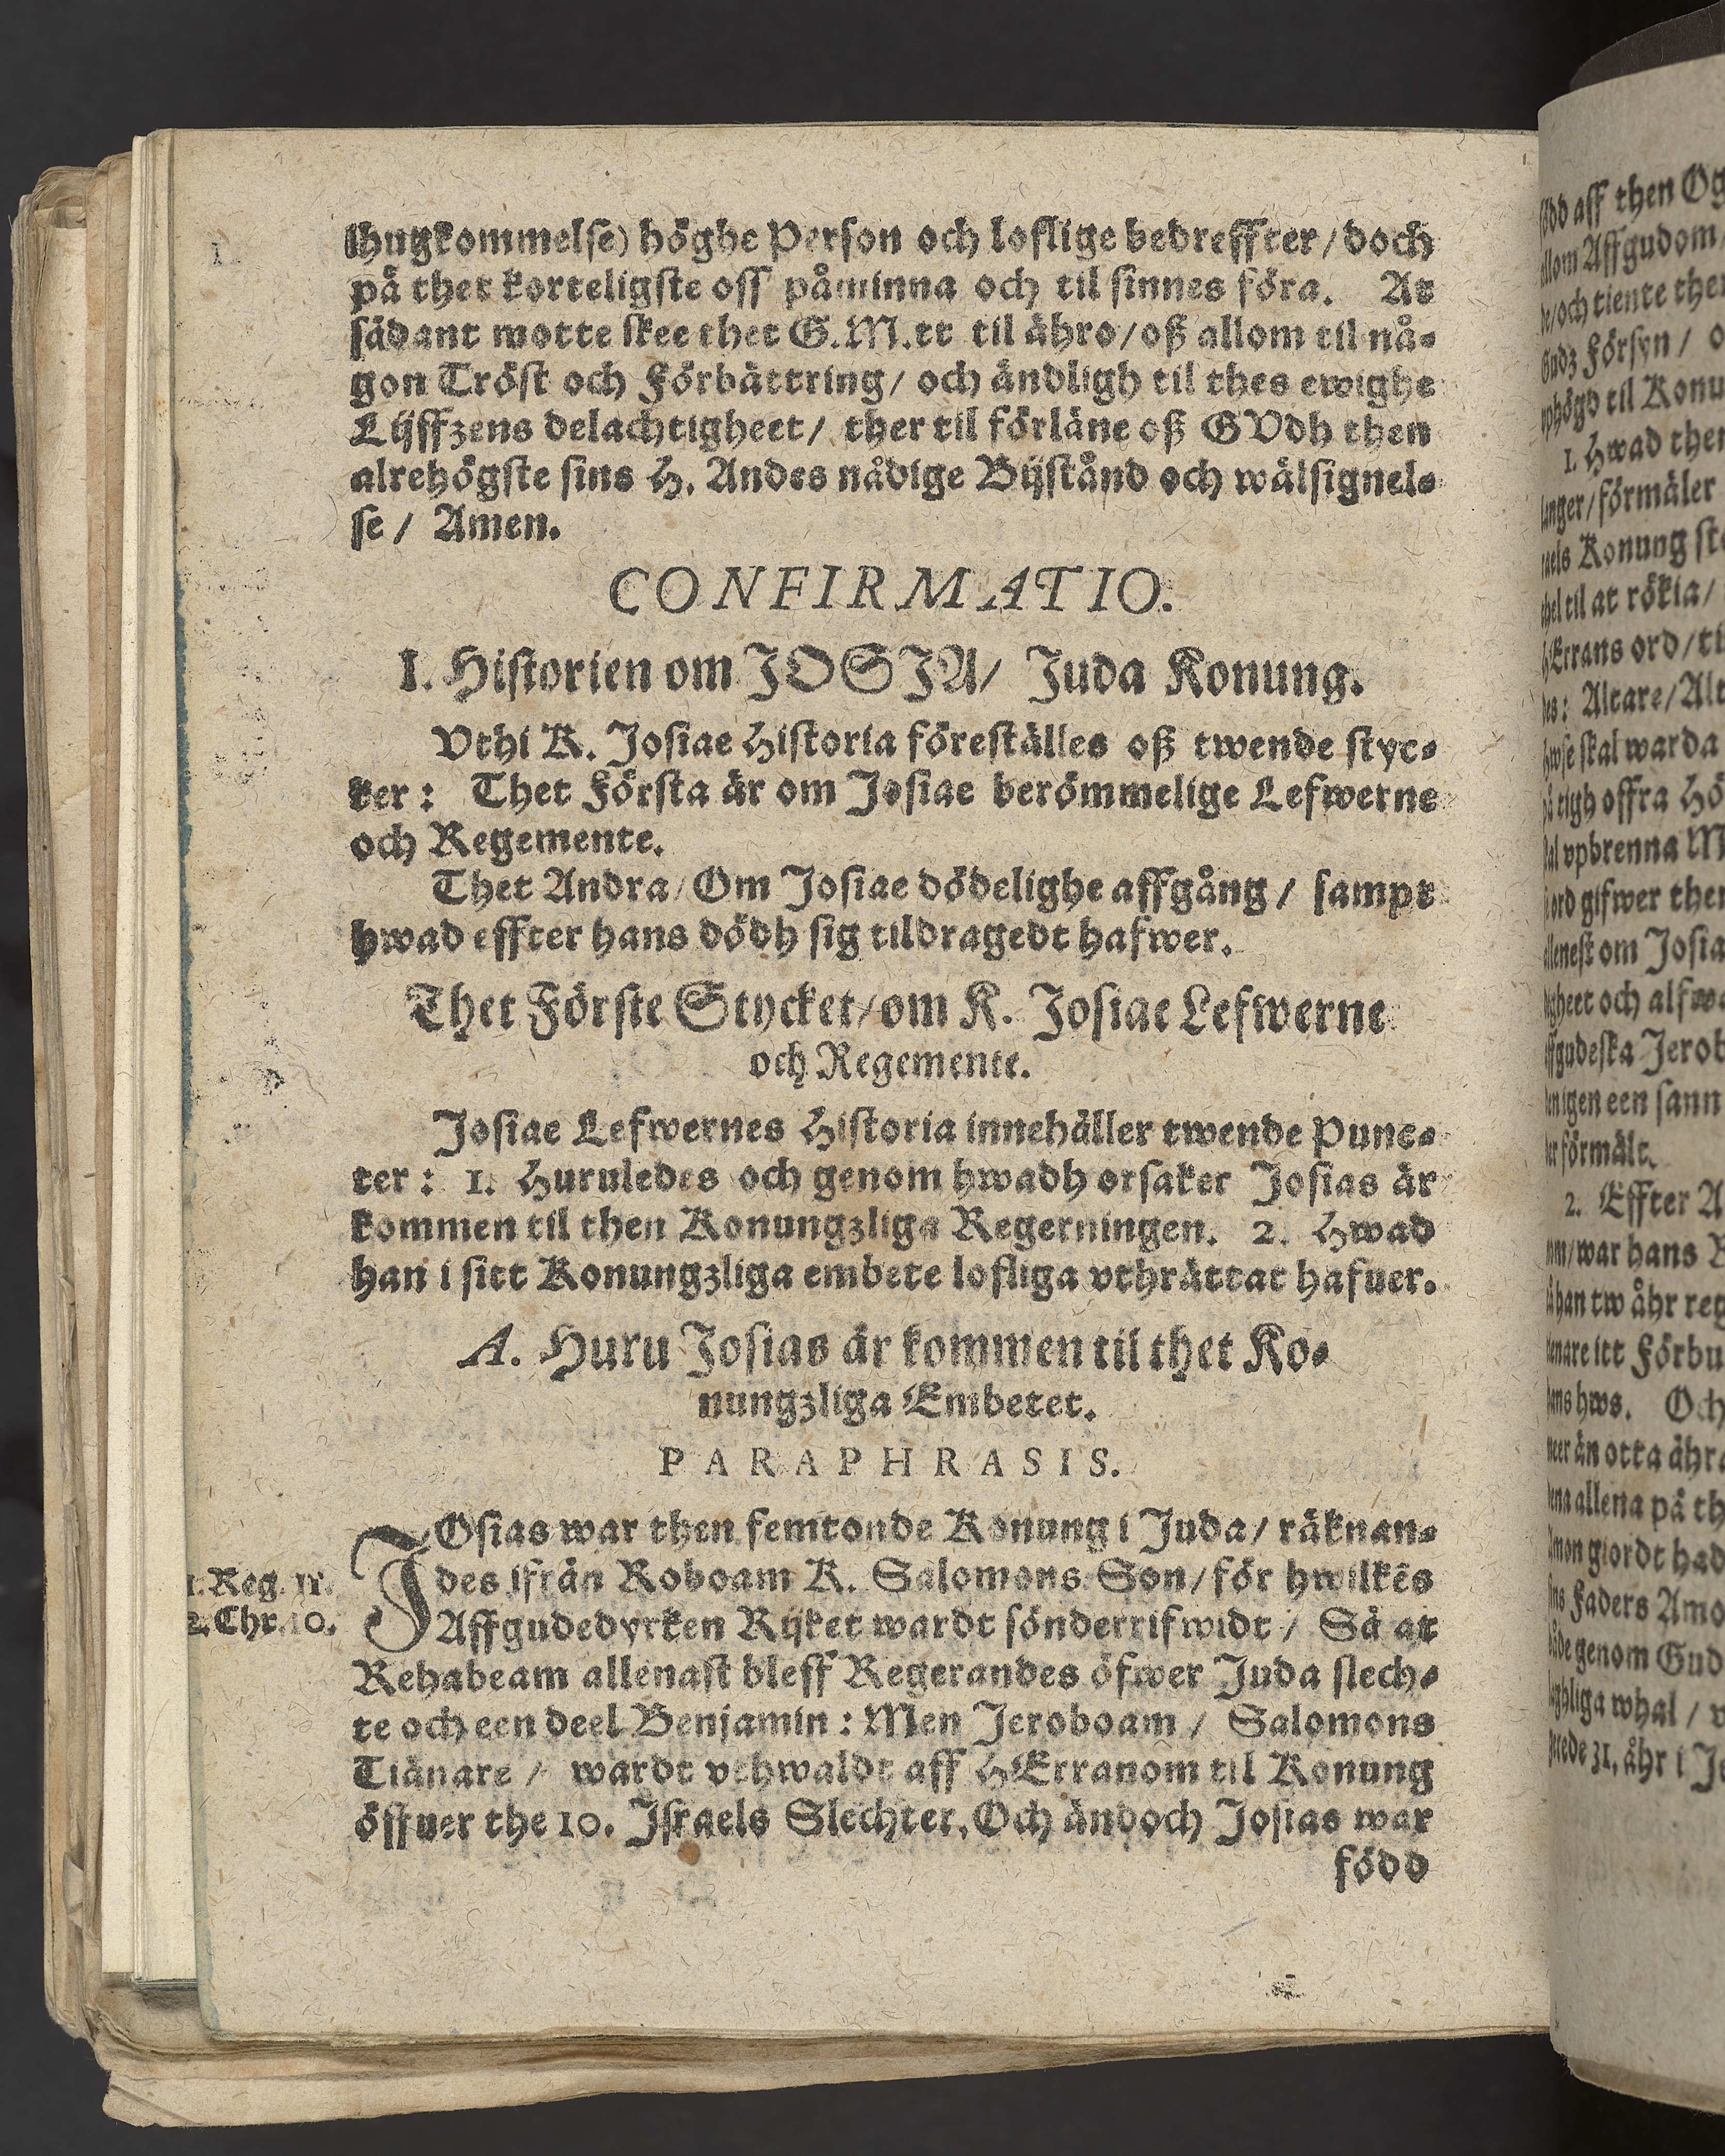 ihugkommelse) höghe Person och loflige bedreffter/ doch
på thet korteligste oss påminna och til sinnes föra. At
sådant motte skee thet G.M.tt til ähro/ oß allom til nå-
gon Tröst och Förbättring/ och ändtligh til thes ewighe
Lijffzens delachtigheet/ ther til förläne oß GVdh then
alrehögste sins H. Andes nådige Bijstånd och wälsignel-
se/ Amen.
CONFIRMATIO.
I. Historien om JOSJA/ Juda Konung.
Vthi K. Josiae Historia föreställes oß twende styc-
ker: Thet Första är om Josiae berömmelige Lefwerne
och Regemente.
Thet Andra/ Om Josiae dödelighe affgång/ sampt
hwad effter hans dödh sig tildragedt hafwer.
Thet Förste Stycket/ om K. Josiae Lefwerne
och Regemente.
Josiae Lefwernes Historia innehåller twende Punc-
ter: 1. Huruledes och genom hwadh orsaker Josias är
kommen til then Konungzliga Regerningen. 2. Hwad
han i sitt Konungzliga embete lofliga vthrättat hafuer.
A. Huru Josias är kommen til thet Ko-
nungzliga Embetet.
PARAPHRASIS.
JOsias war then femtonde Konung i Juda/ räknan-
des ifrån Roboam K. Salomons Son/ för hwilkēs
Affgudedyrken Rijket wardt sönderrifwidt/ Så at
Rehabeam allenast bleff Regerandes öfwer Juda slech-
te och een deel Benjamin: Men Jeroboam/ Salomons
Tiänare/ wardt vthwaldt aff HErranom til Konung
öffuer the 10. Israels Slechter, Och ändoch Josias war
född
1. Reg. 11.
2. Chr. 10.
född aff then
allom Affgudom
de/ och tiente
Gudz Försyn/
vphögd til
1. Hwad
langer/ förmäler
raels Konung
til at rökia/
HErrans ord/
des: Altare/
hwse skal warda
på tigh offra
skal vpbrenna
ord gifwer
allenest om
och
Affgudeska
igen een
förmält.
2. Effter
war hans
han tw åhr
tienare itt
hans hws. Och
meer än otta
allena på
Amon giordt
sins Faders
både genom
whal/
31. åhr i